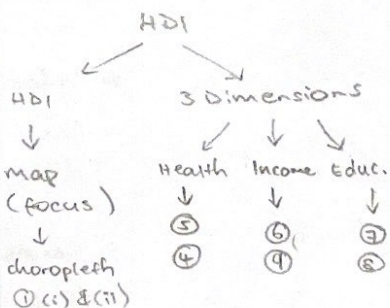 HDI
HDI 3 Dimensions
map Health Income Educ.
(focus) ⑤ ⑥ ⑦
④ ⑨ ⑧
choropleth
① (i) & (ii)